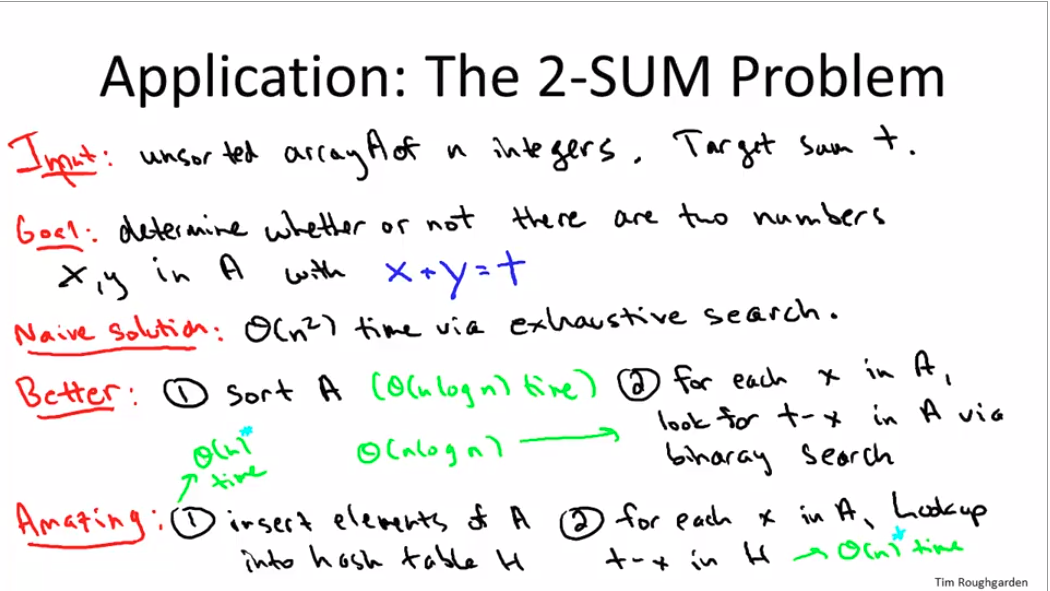 Application: The 2-SUM Problem
Input: unsorted array A of n integers. Target sum t.
Goal: determine whether or not there are two numbers
x,y in A with x+y=t
Naive Solution: Θ(n²) time via exhaustive search.
Better: ① sort A (Θ(n log n) time) ② for each x in A,
look for t-x in A via
binaray search
Θ(n log n)
Θ(n)* time
Amazing: ① insert elements of A
into hash table H
② for each x in A, Lookup
t-x in H → Θ(n)* time
Tim Roughgarden